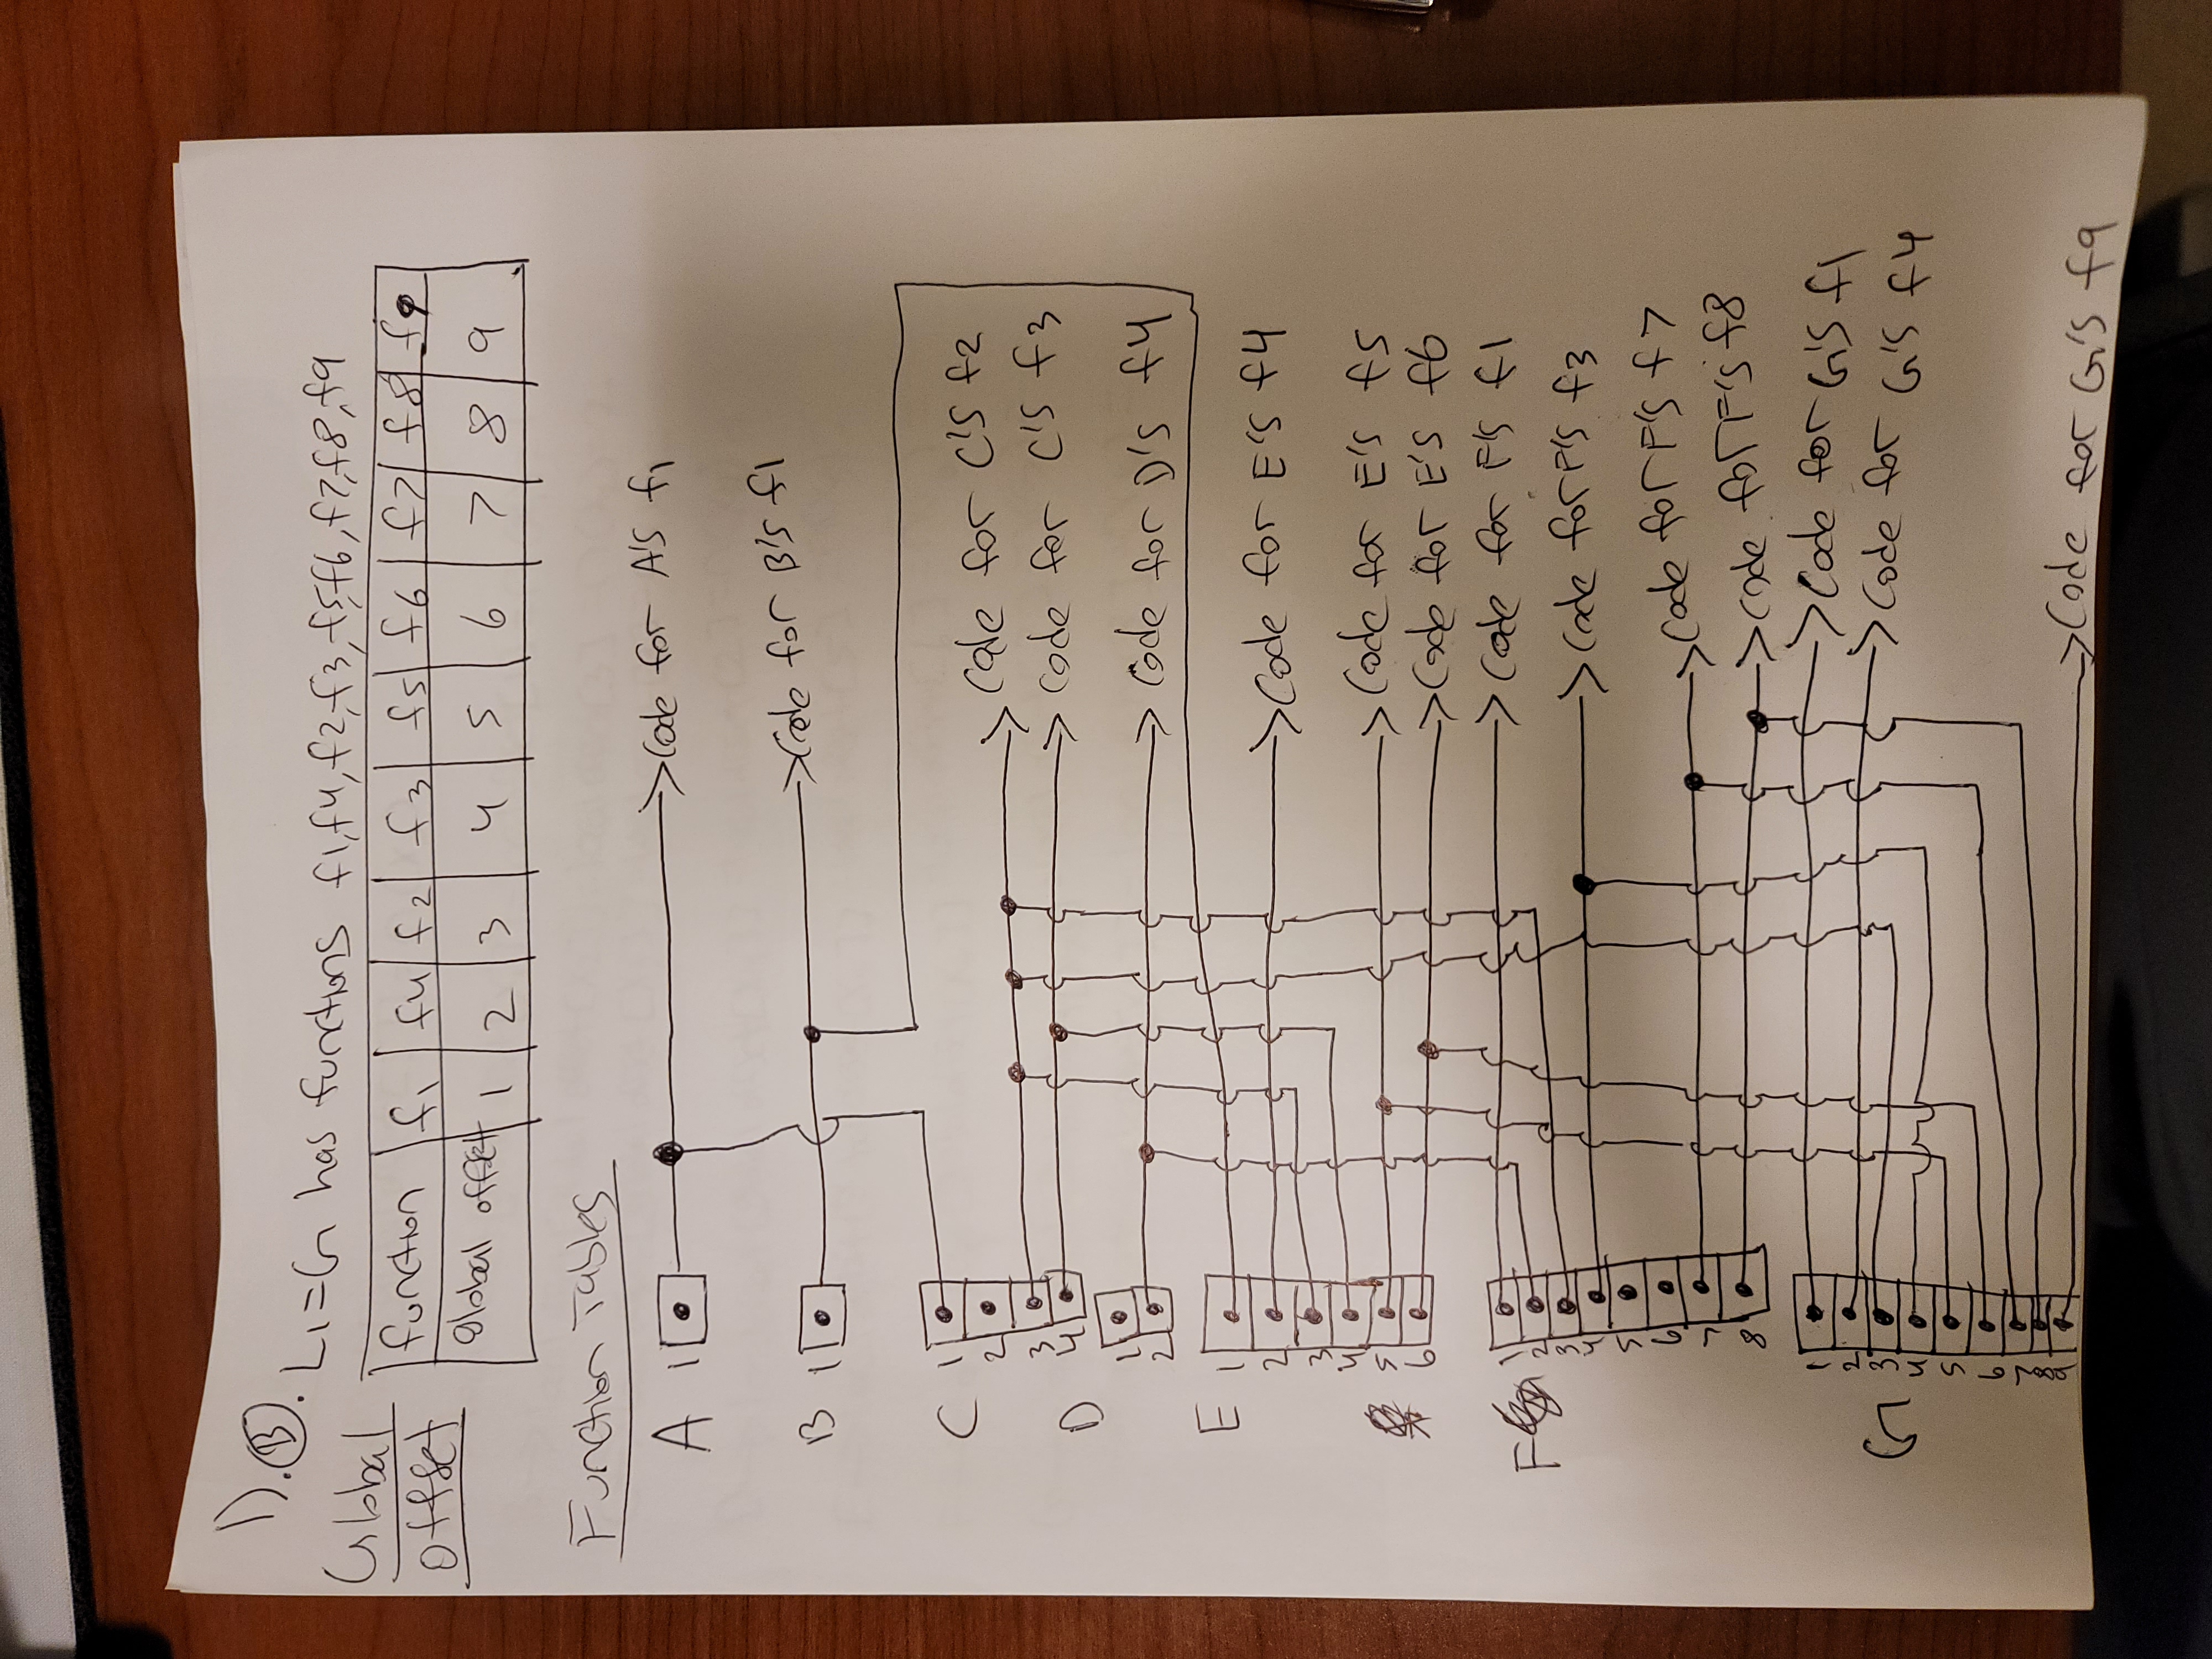 1). B.
L1=G has functions f1,f4,f2,f3,f5,f6,f7,f8,f9
Global
offset
function f1 f4 f2 f3 f5 f6 f7 f8 f9
global offset 1 2 3 4 5 6 7 8 9
Function Tables
A 1 Code for A's f1
B 1 Code for B's f1
C 1
2 Code for C's f2
3
4 Code for C's f3
D
1
2 Code for D's f4
E 1
2 Code for E's f4
3
4
5 Code for E's f5
6 Code for E's f6
F 1 Code for F's f1
2
3
4 Code for F's f3
5
6
7 Code for F's f7
8 Code for F's f8
1 Code for G's f1
2 Code for G's f4
G 3
4
5
6
7
8
9 Code for G's f9